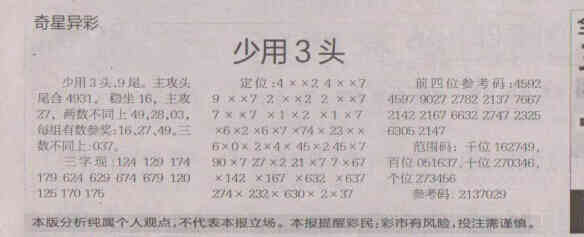 奇星异彩
少用3头
少用3头,9尾。主攻头
尾合4931。稳坐16,主攻
27,两数不同上49,28,03,
每组有数参奖:16,27,49,三
数不同上:037。
三字现:124 129 174
179 624 629 674 679 120
125 170 175
定位:4××2 4××7
9××7 2××2 2××7
7××7 ×1×2 ×1×7
×6×2 ×6×7 ×74× 23××
6×0× 2×4× 45×2 45×7
90×7 27×2 21×7 7×67
×142 ×167 ×632 ×637
274× 232× 630× 2×37
前四位参考码:4592
4597 9027 2782 2137 7667
2142 2167 6632 2747 2325
6305 2147
范围码:千位162749,
百位051637,十位270346,
个位273456
参考码:2137029
本版分析纯属个人观点,不代表本报立场。本报提醒彩民:彩市有风险,投注需谨慎。